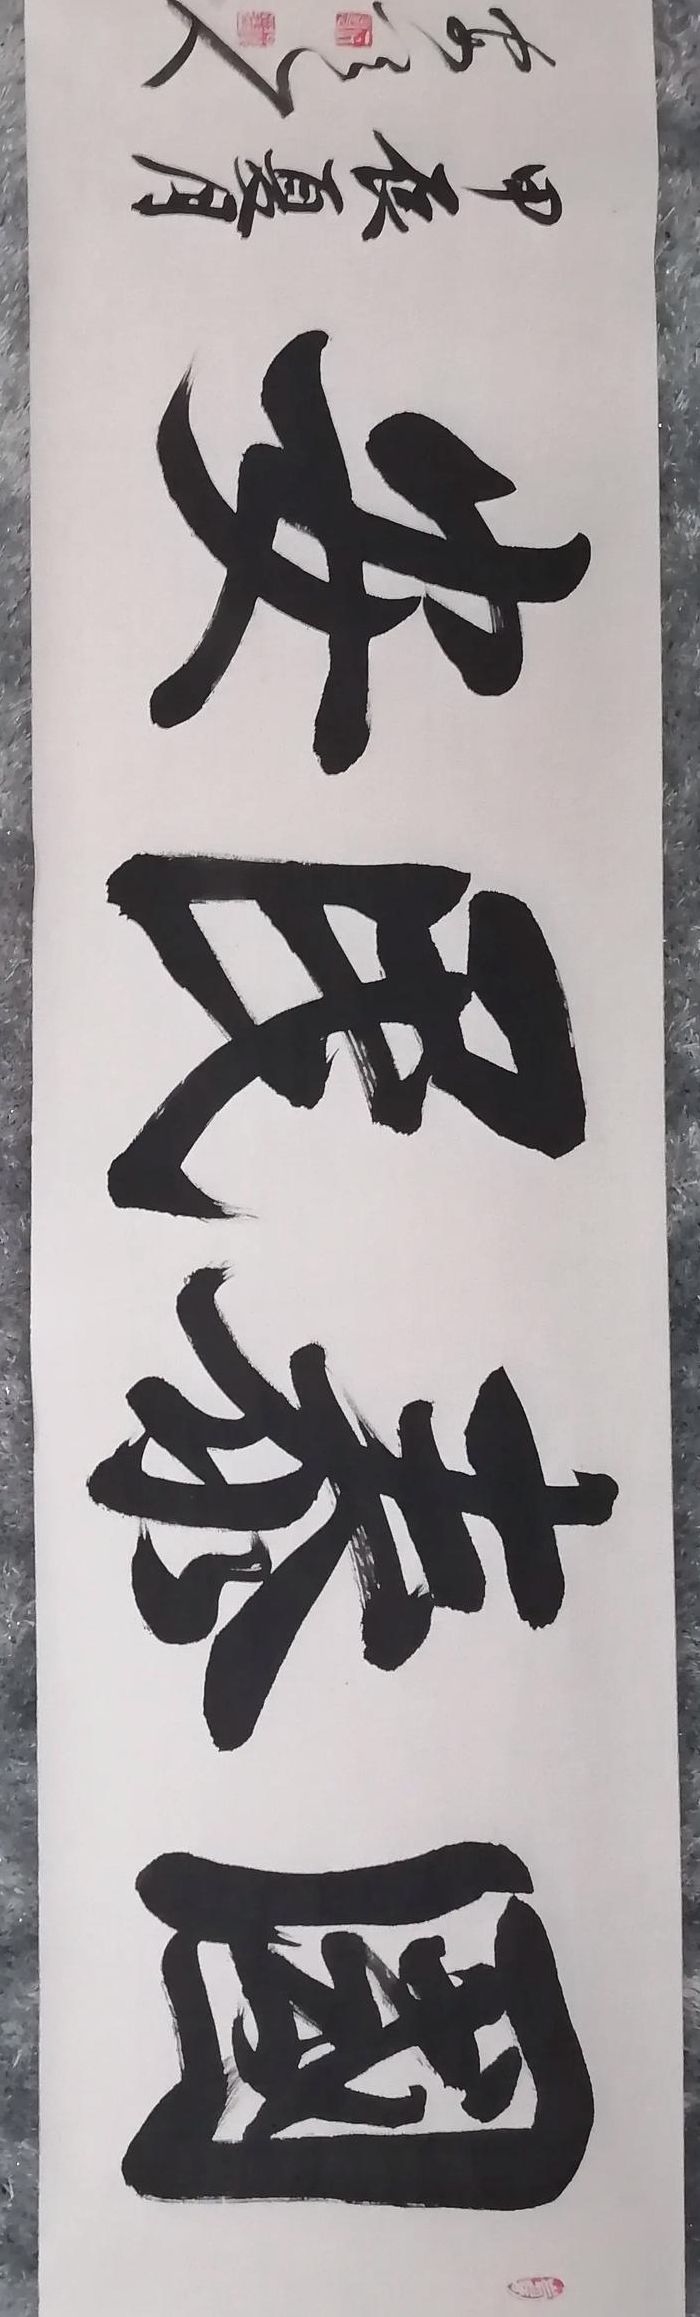 國泰民安
甲辰夏月